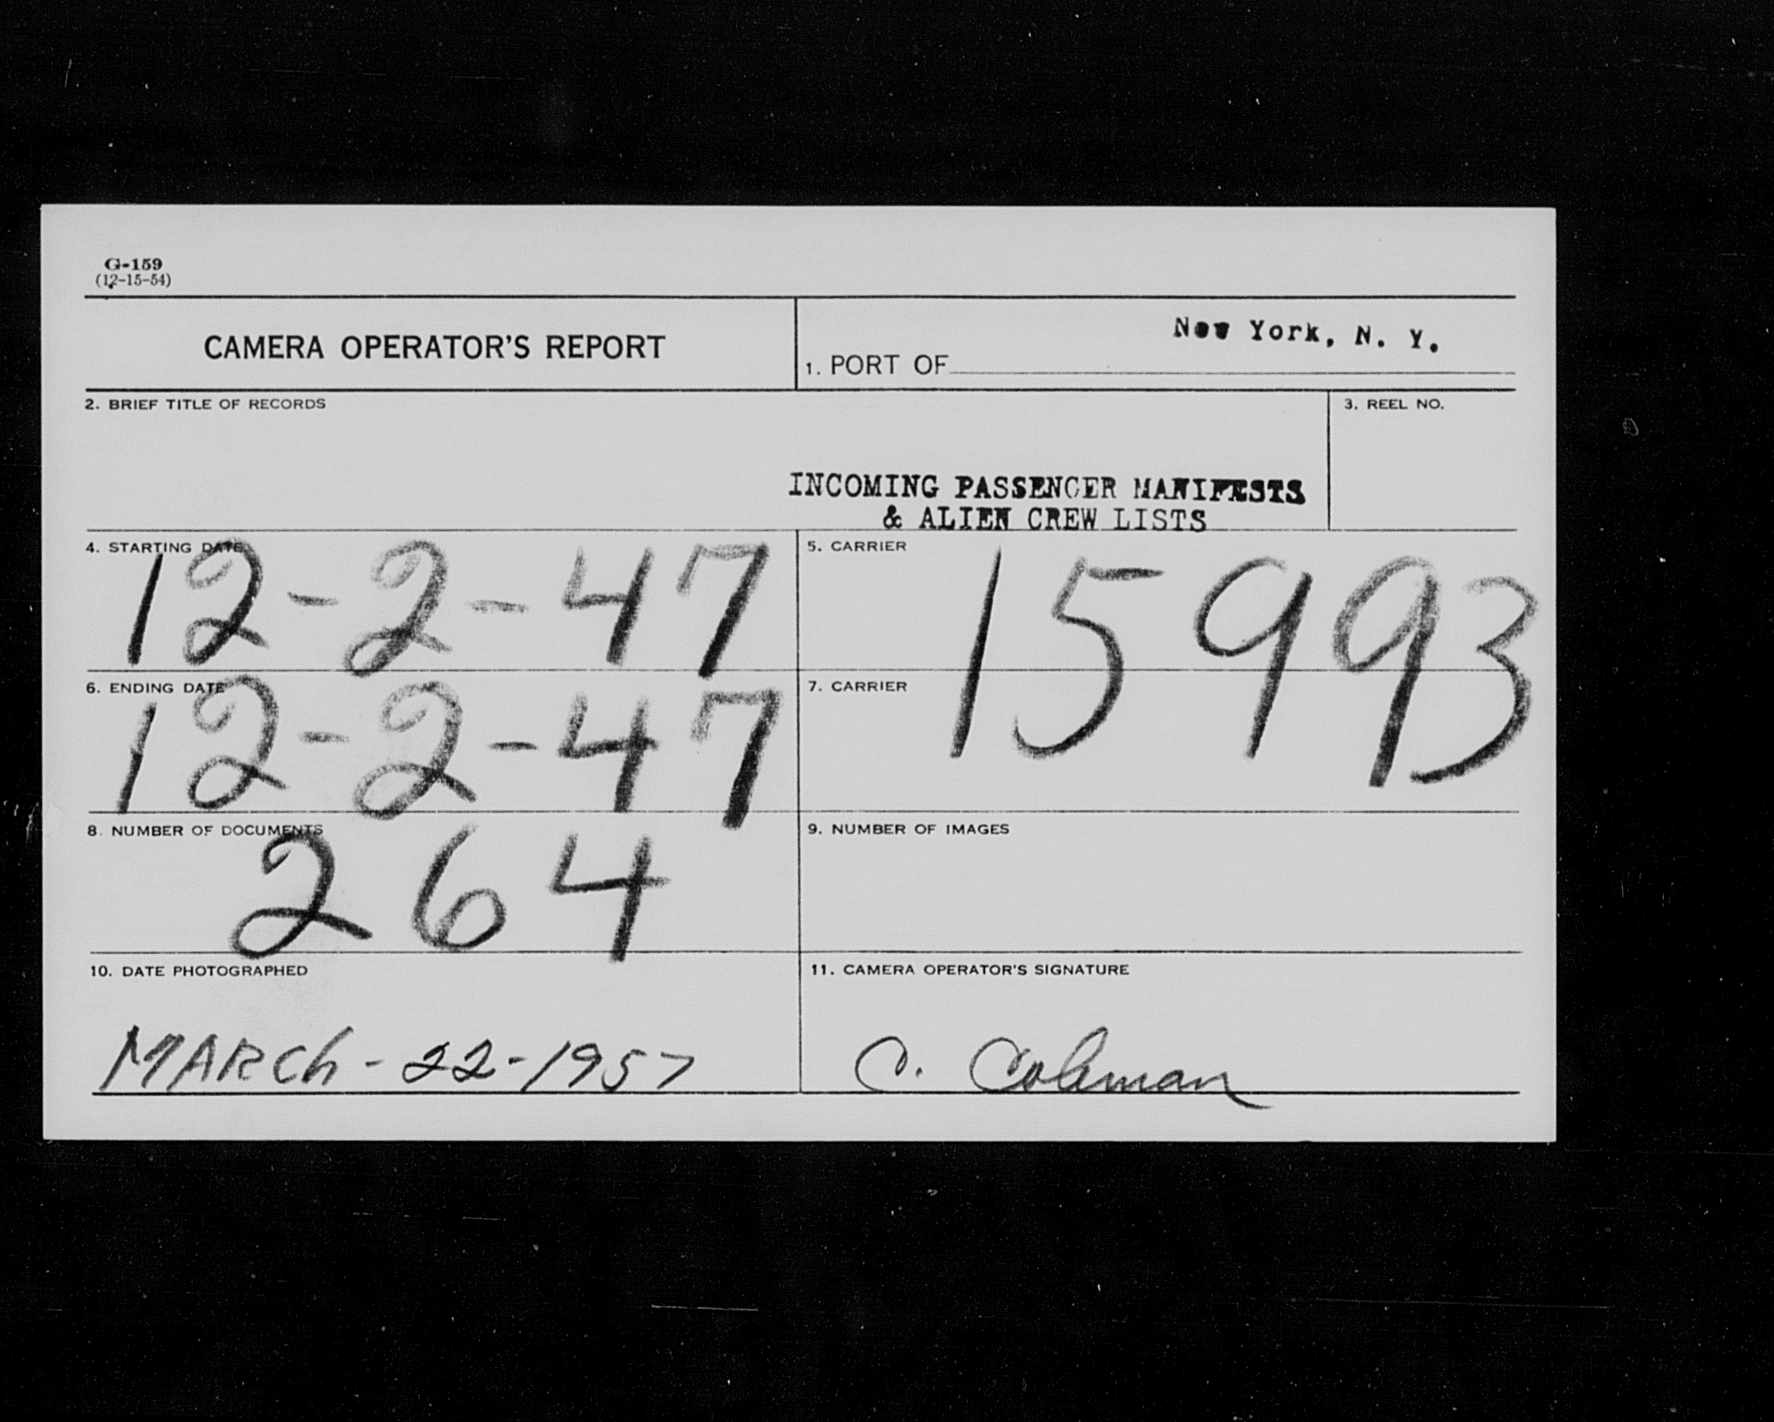 G-159
(12-15-54)
CAMERA OPERATOR'S REPORT
1. PORT OF New York, N. Y.
2. BRIEF TITLE OF RECORDS
3. REEL NO.
INCOMING PASSENGER MANIFESTS
& ALIEN CREW LISTS
4. STARTING DATE
12-2-47
5. CARRIER
15993
6. ENDING DATE
12-2-47
7. CARRIER
8. NUMBER OF DOCUMENTS
264
9. NUMBER OF IMAGES
10. DATE PHOTOGRAPHED
MARCh-22-1957
11. CAMERA OPERATOR'S SIGNATURE
C. Coleman